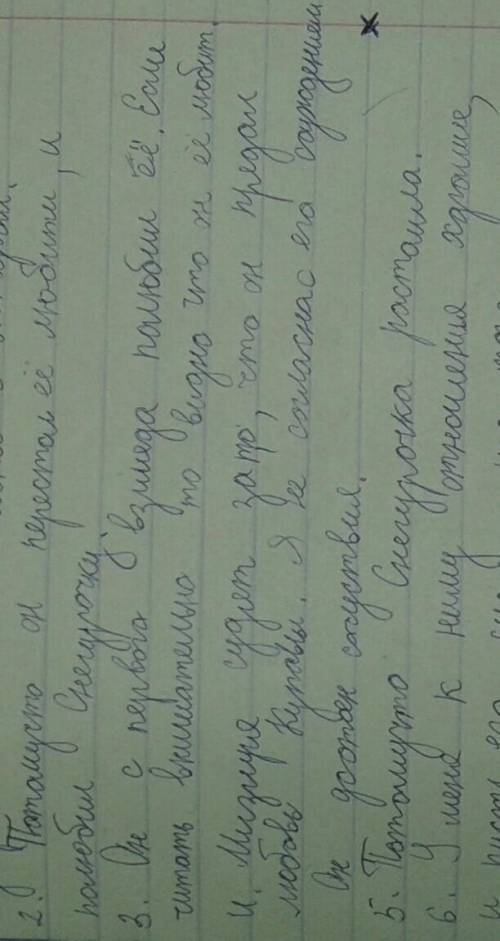 2. Потомусто он перестал её любити, и
полюбил Снегурочку.
3. Он с первого взгляда полюбил её. Если
читать внимательно то видно что он её любит.
4. Мизгиря судят зато, что он предал
любовь Купавы. Я не согласна с его суждением
Он достоен сочуствия.
5. Потомучто Снегурочка расташла.
6. У меня к нему отношения хорошие,
и